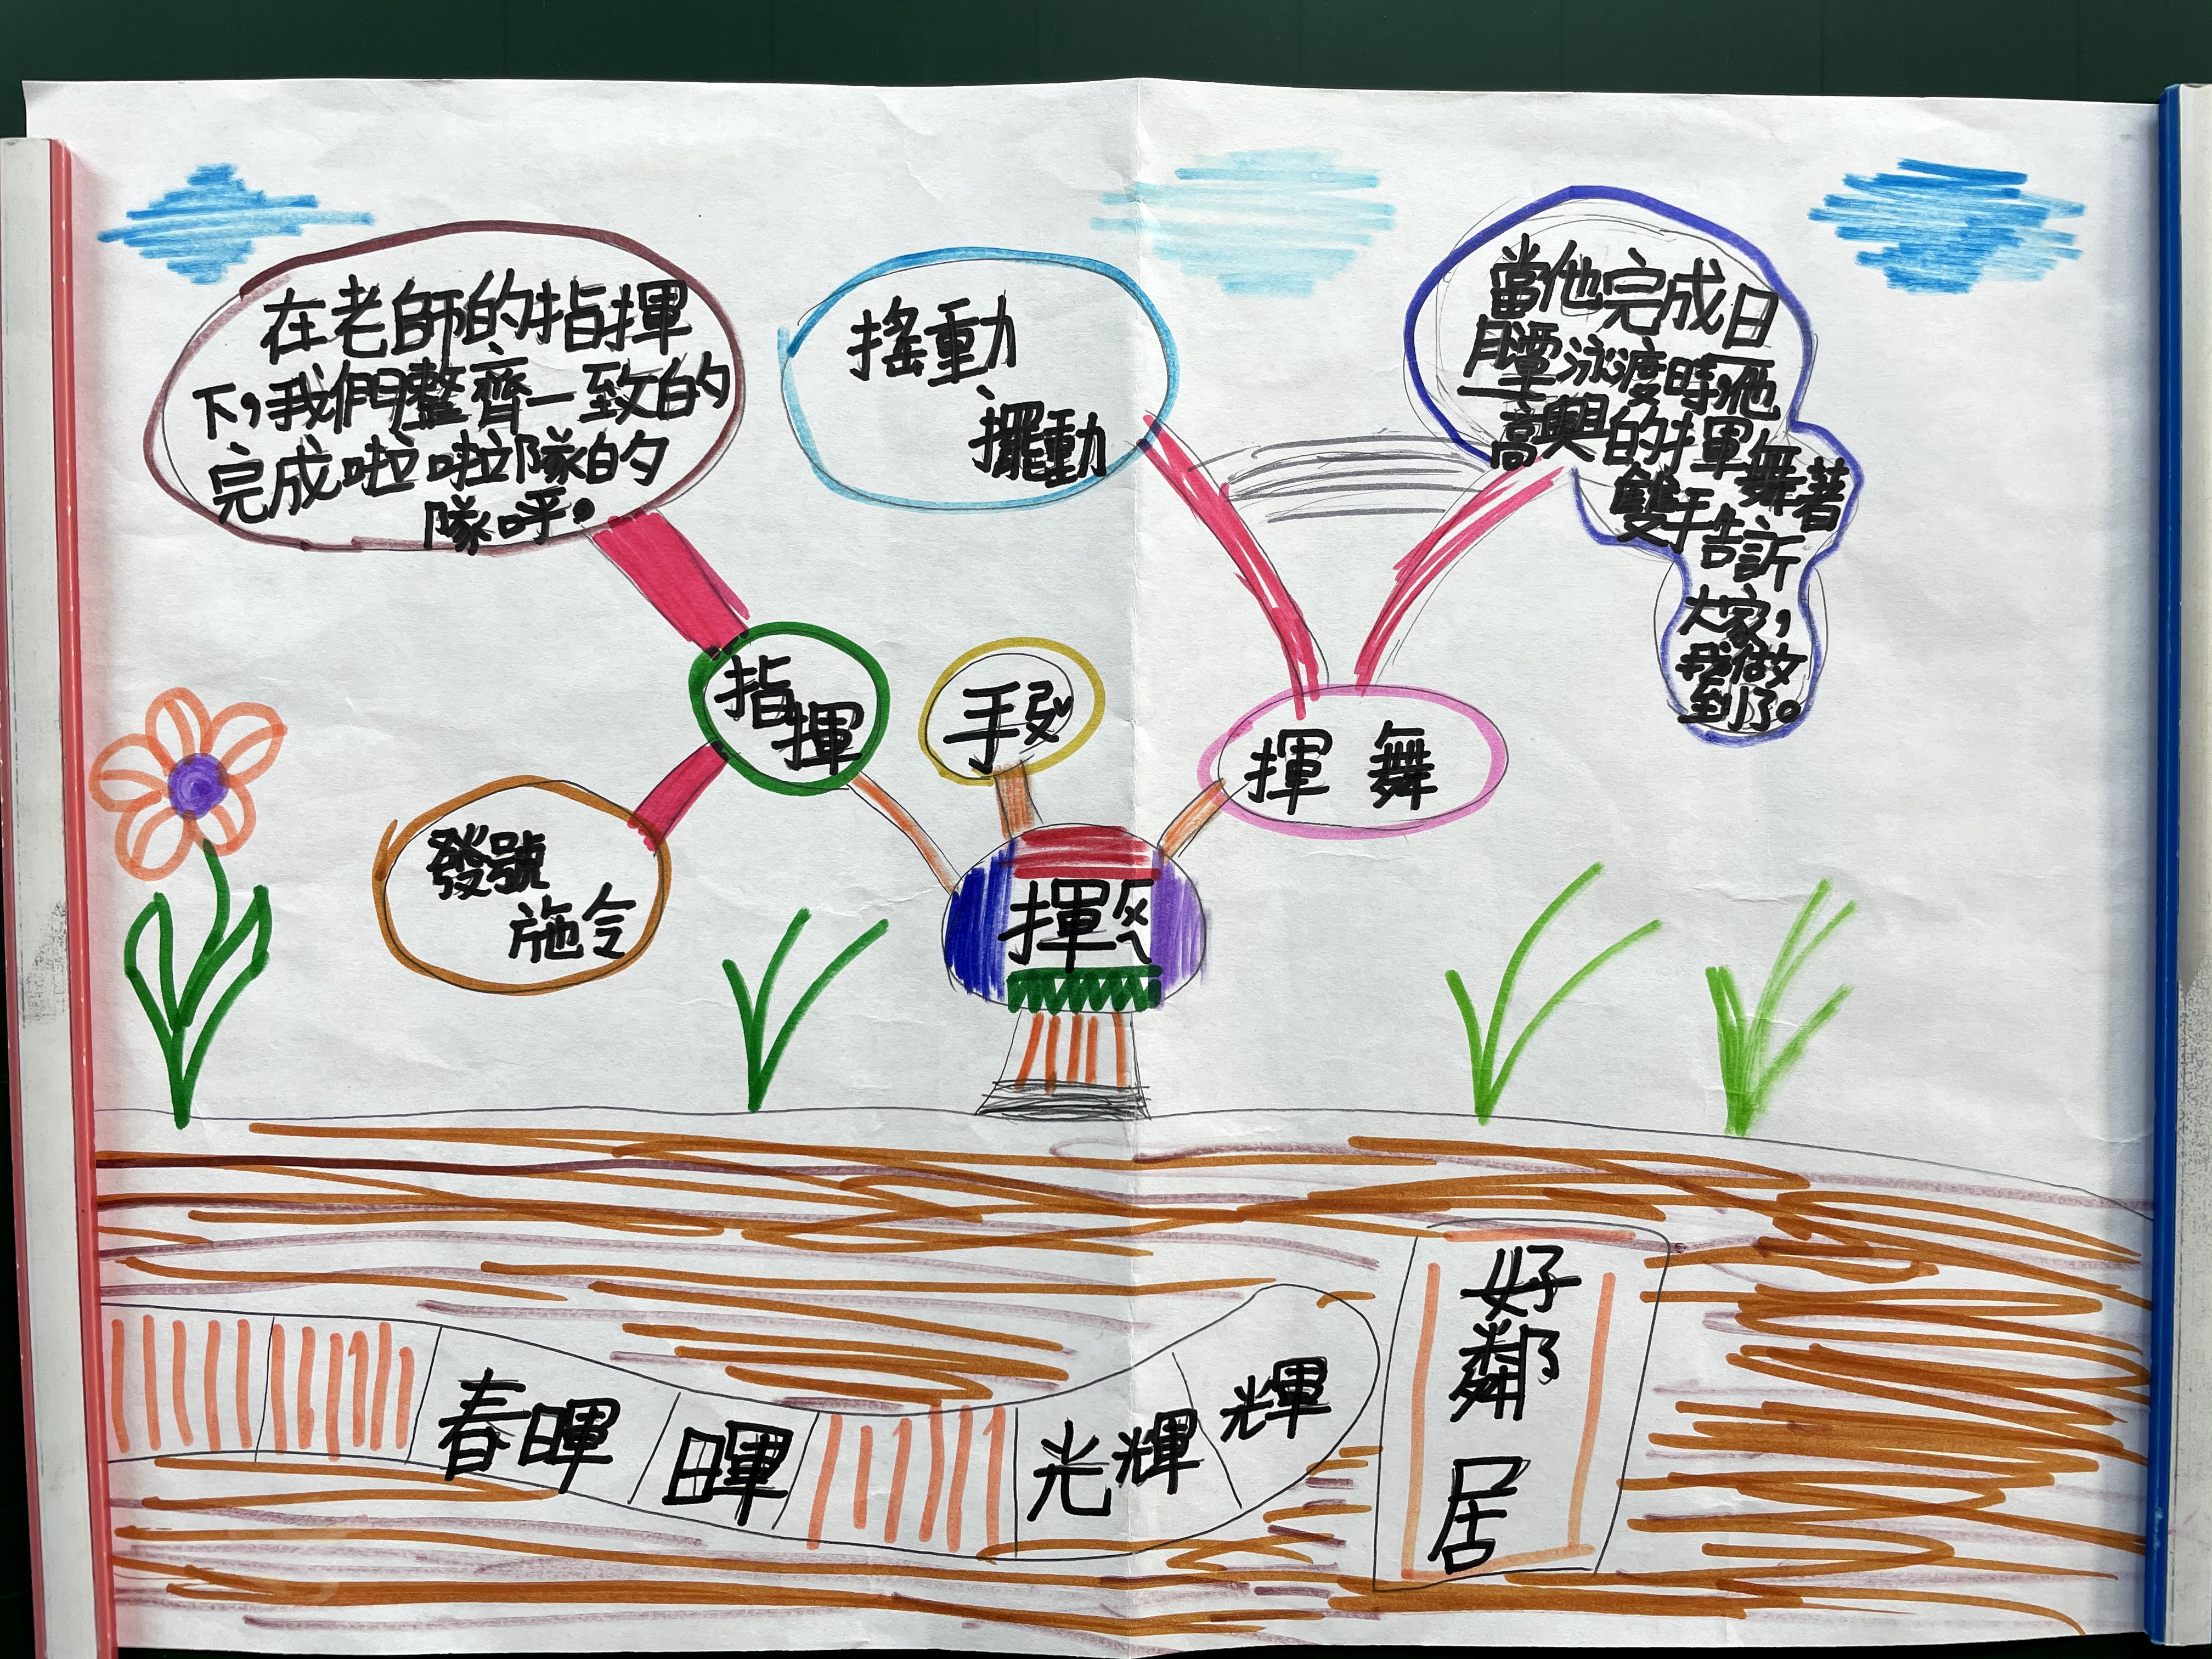 在老師的指揮
下,我們整齊一致的
完成啦啦隊的
隊呼。
搖動、
擺動
當他完成日
月潭泳渡時,他
高興的揮舞著
雙手告訴
大家,
我做
到了。
指
揮
手ㄕㄡˇ
揮 舞
發號
施令
揮ㄏㄨㄟ
好
鄰
居
春暉
暉
光輝
輝